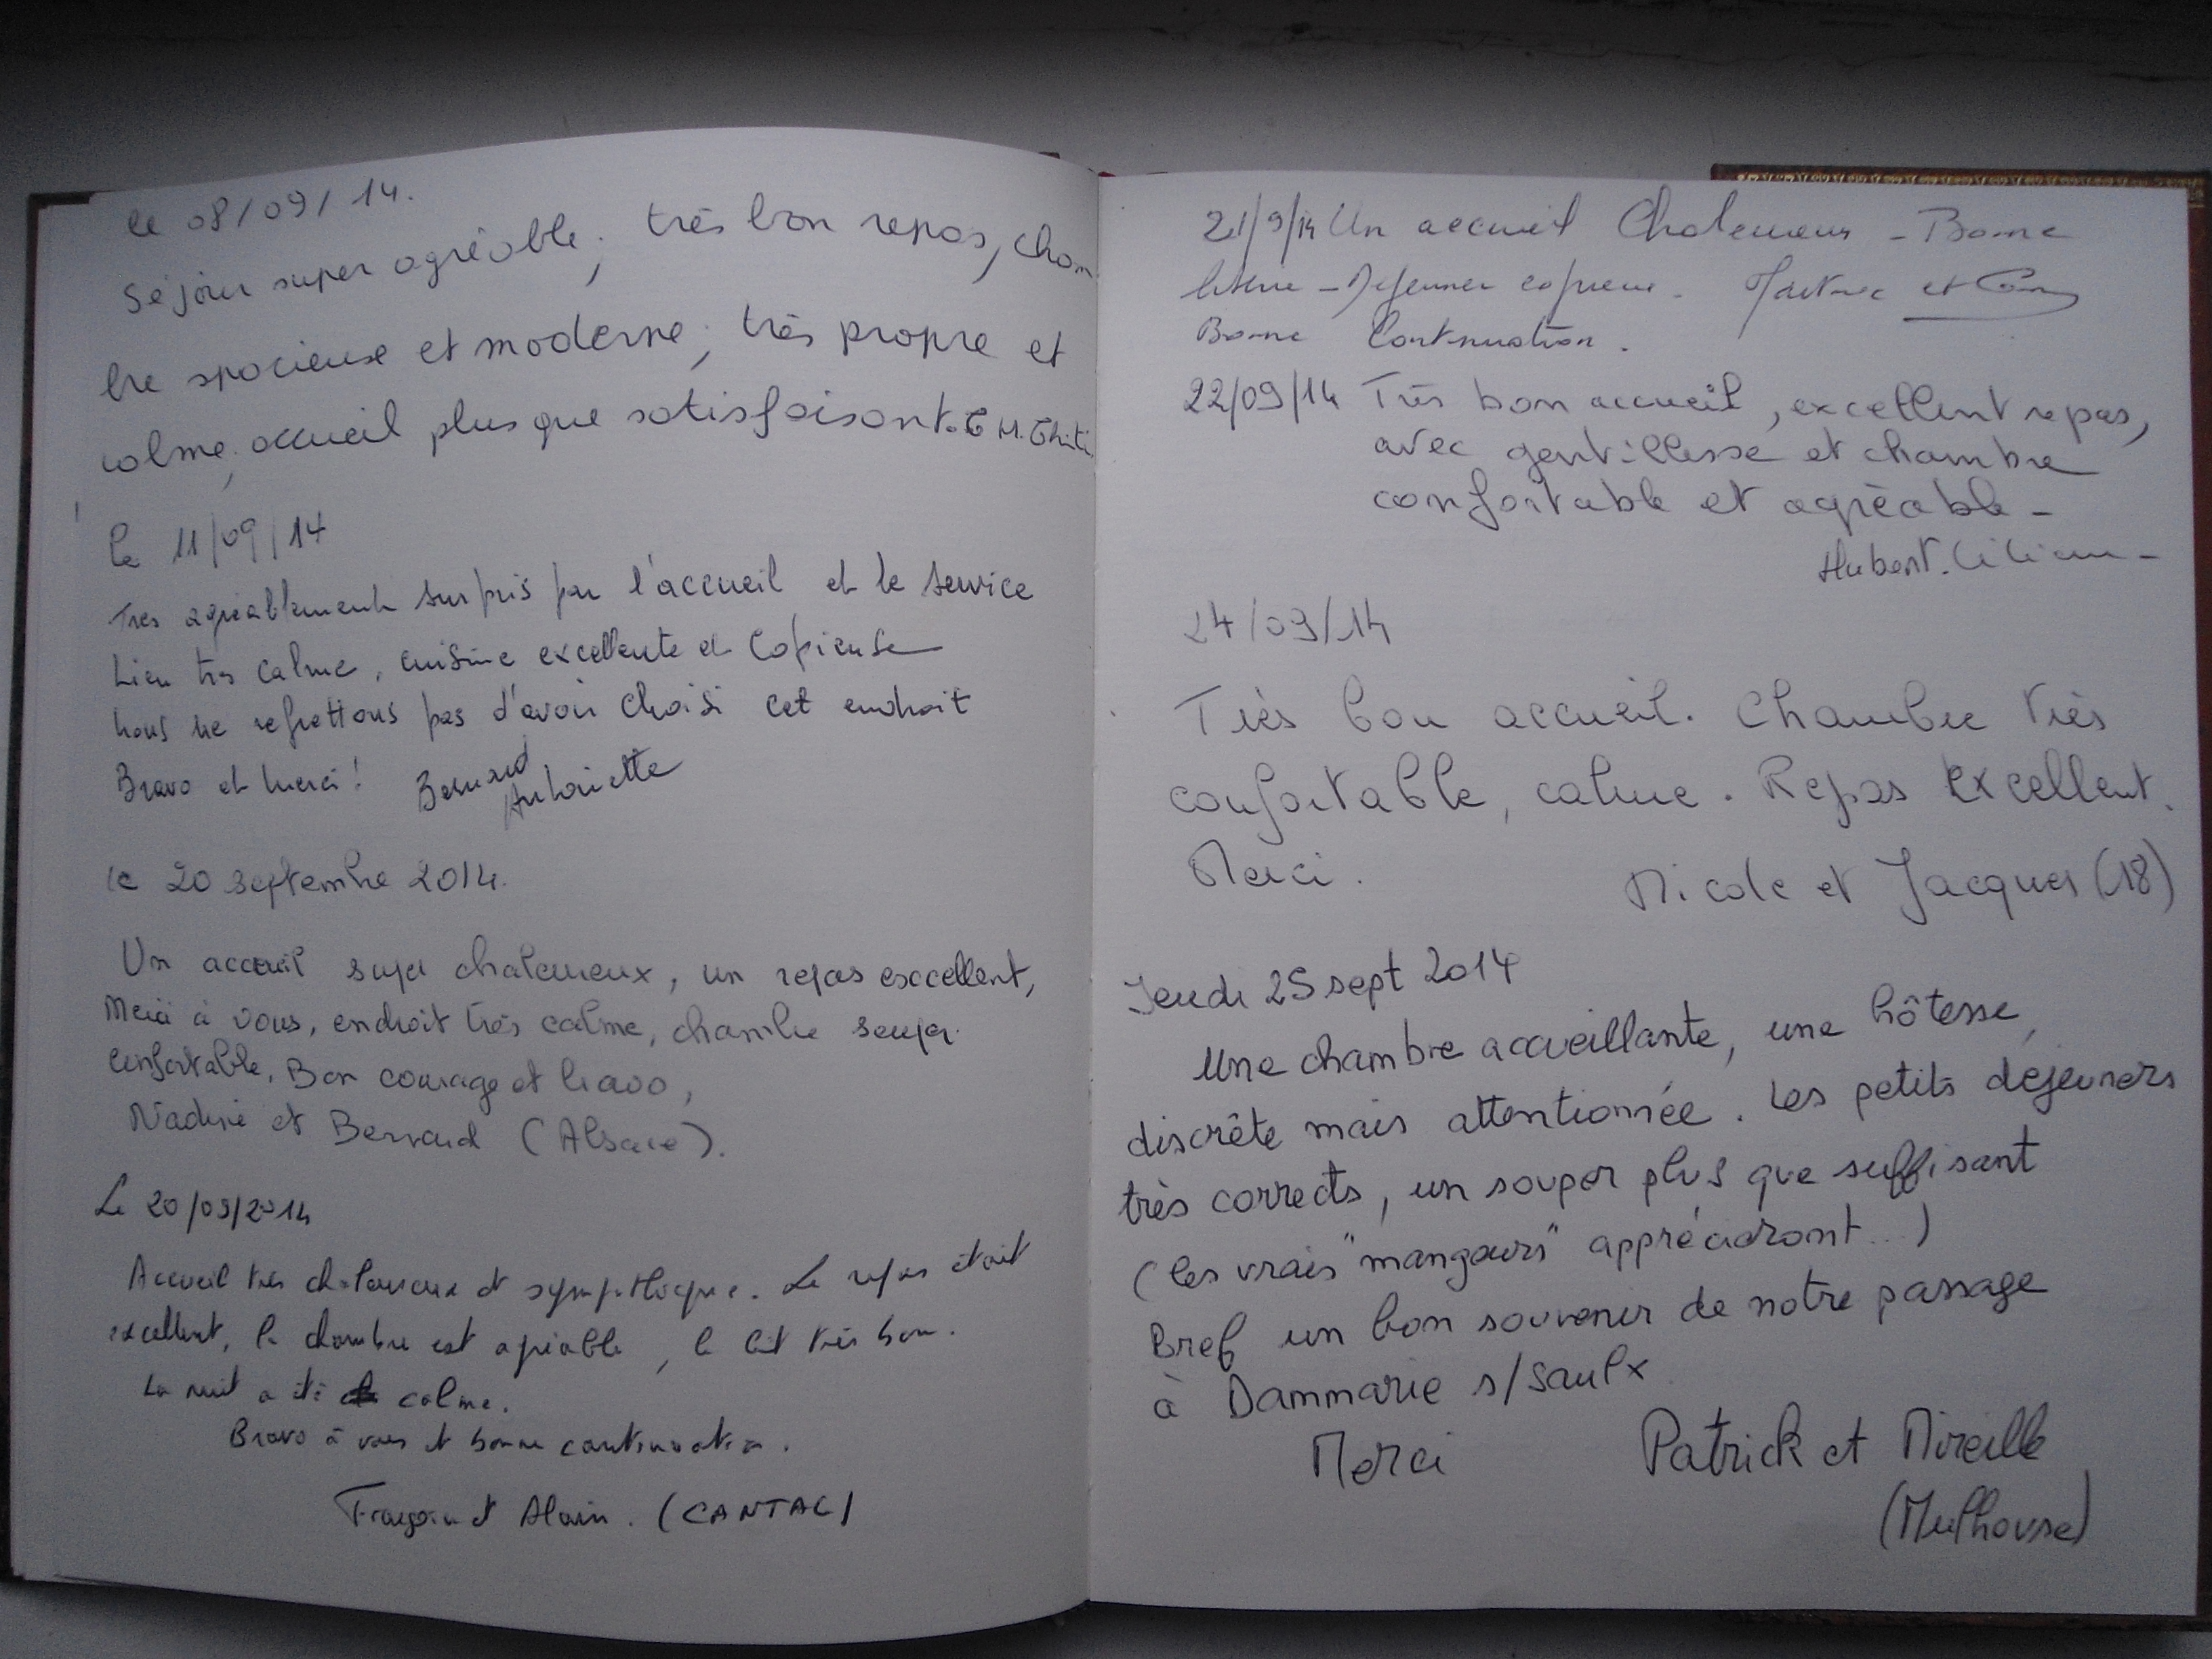 le 08/09/14.
Séjour super agréable, très bon repas, cham
bre spacieuse et moderne, très propre et
calme, accueil plus que satisfaisant.
le 11/09/14
Très agréablement surpris par l'accueil et le service
Lieu très calme, cuisine excellente et copieuse
nous ne regrettons pas d'avoir choisi cet endroit
Bravo et merci! Bernard
Antoinette
le 20 septembre 2014.
Un accueil super chaleureux, un repas exccellent,
Merci à vous, endroit très calme, chambre super
confortable, Bon courage et bravo,
Nadine et Bernard (Alsace).
Le 20/09/2014
Accueil très chaleureux et sympathique. Le repas était
excellent, la chambre est agréable, le lit très bon.
La nuit a été calme.
Bravo à vous et bonne continuation.
et Alain. (CANTAL)
21/9/14 Un accueil Chaleureux - Bonne
literie - Dejeuner copieux. et
Bonne Continuation.
22/09/14 Très bon accueil, excellent repas,
avec gentillesse et chambre
confortable et agréable -
Hubert.
24/09/14
Très bon accueil. Chambre très
confortable, calme. Repas excellent.
Merci.
Nicole et Jacques (18)
Jeudi 25 sept 2014
Une chambre accueillante, une hôtesse,
discrête mais attentionnée. Les petits dejeuners
très corrects, un souper plus que suffisant
(les vrais "mangeurs" apprécieront...)
Bref un bon souvenir de notre passage
à Dammarie s/Saulx
Merci Patrick et Mireille
(Mulhouse)